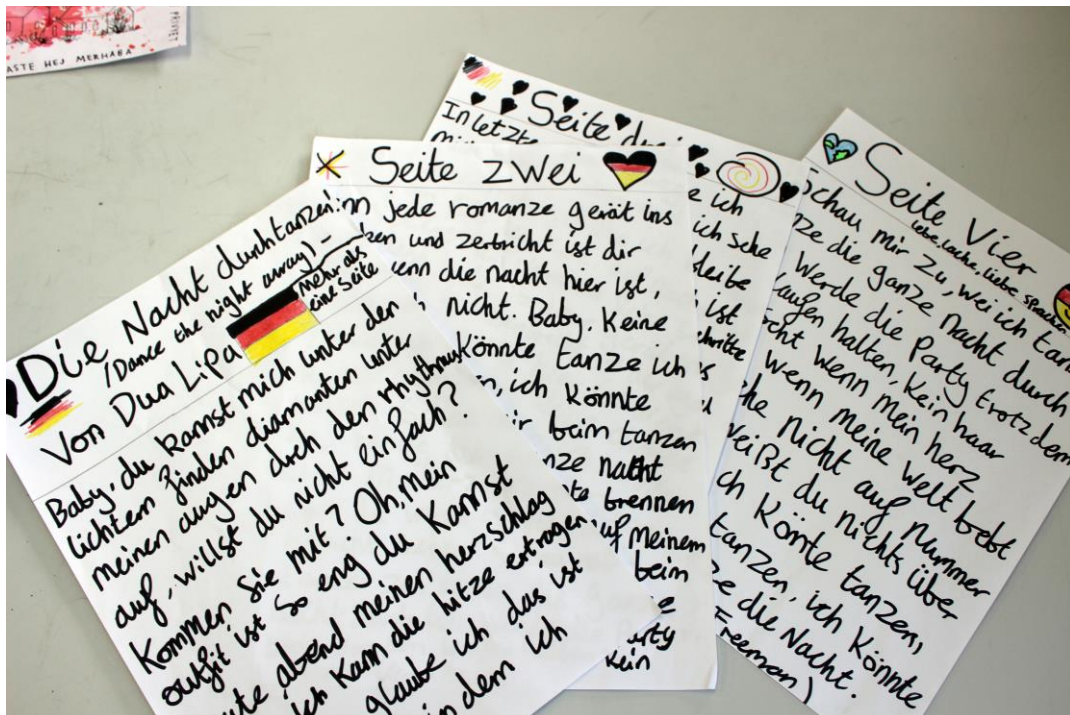 PRIVYET
ASTE HEJ MERHABA
Die Nacht durchtanzen
(Dance the night away) -
Von Dua Lipa
mehr als
eine Seite
Baby, du kannst mich unter den
lichtern finden diamanten unter
meinen augen dreh den rhythmus
auf, willst du nicht einfach?
Kommen Sie mit? Oh, mein
outfit ist so eng du kannst
ute abend meinen herzschlag
ch kann die hitze ertragen
glaube ich das ist
in dem ich
Seite Zwei
nn jede romanze gerät ins
ken und zerbricht ist dir
enn die nacht hier ist,
nicht. Baby, Keine
Könnte tanze ich
n, ich könnte
ir beim tanzen
nze nacht
te brennen
uf meinem
beim
e
arty
kein
Seite drei
In letzte
e ich
ich sehe
bleibe
ist
chritte
Seite Vier
lebe, lache, liebe sprachen
Schau mir zu, wei ich tan
nze die ganze Nacht durch
werde die Party trotzdem
aufen halten, kein haar
cht wenn mein herz
wenn meine welt bebt
he nicht auf Nummer
Weißt du nichts über
ch Könnte tanzen,
tanzen, ich Könnte
ze die Nacht.
Freeman)